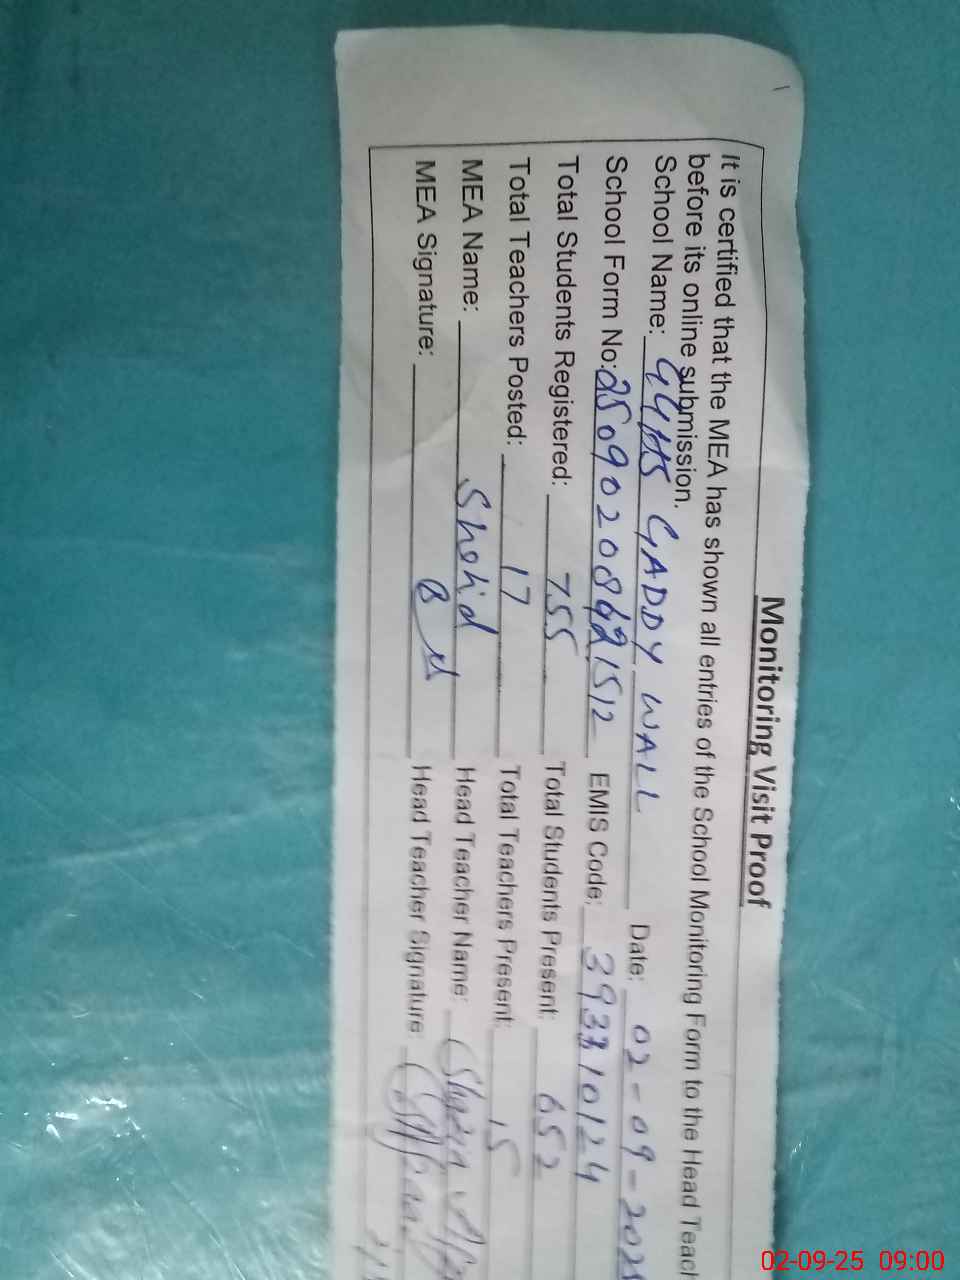 Monitoring Visit Proof
It is certified that the MEA has shown all entries of the School Monitoring Form to the Head Teach
before its online submission.
School Name: GGHS GADDY WALL Date: 02-09-202
School Form No: EMIS Code:
Total Students Registered: 755 Total Students Present: 652
Total Teachers Posted: 17 Total Teachers Present: 15
MEA Name: Shahid Head Teacher Name: Shazia
MEA Signature: Head Teacher Signature:
02-09-25 09:00